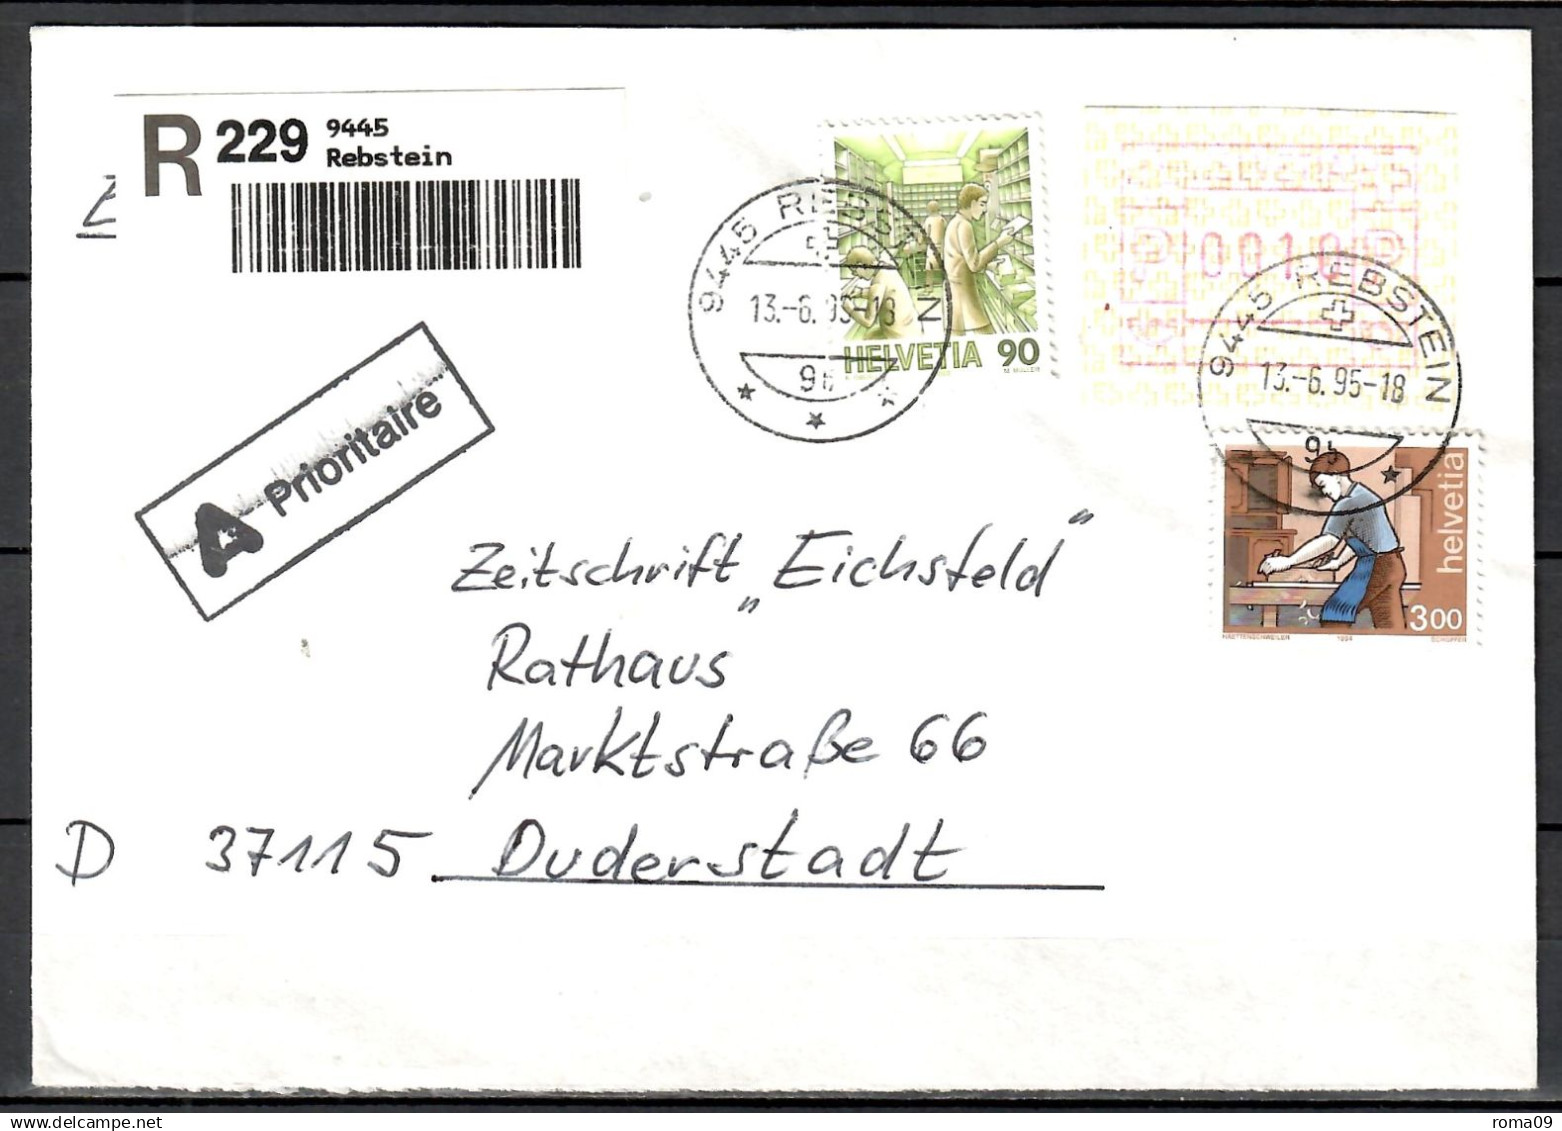 R 229 9445
Rebstein
9445 REBSTEIN
13.-6.95-18
9b
HELVETIA 90
M. MÜLLER
0010
P P
9445 REBSTEIN
13.-6.95-18
9b
helvetia
300
HAETTENSCHWEILER 1994 SCHOPFER
A Prioritaire
Zeitschrift "Eichsfeld"
Rathaus
Marktstraße 66
D 37115 Duderstadt
delcampe.net
roma09